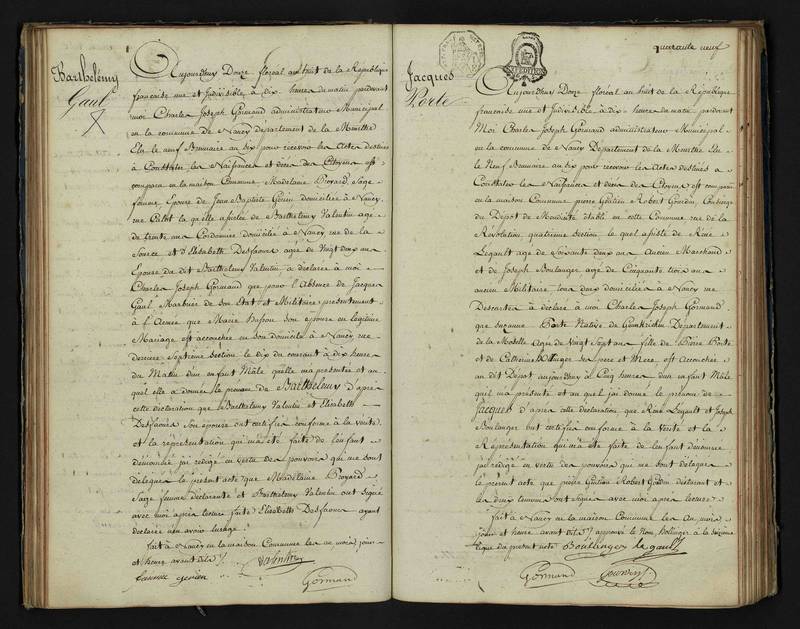 Barthelémy
Gaul
Aujourd'huy Donze floreal an huit de la République
française une et Indivisible, à dix heures du matin pardevant
moi Charles Joseph Gormand administrateur Municipal
en la commune de Nancy département de la Meurthe
Elu le neuf Brumaire an six pour recevoir les Actes destinés
à Constater les Naissances et décès des Citoyens est
comparu en la maison Commune Madelaine Provard, Sage
femme Epouse de Jean Baptiste Genin domiciliée à Nancy,
rue la quelle assistée de Barthelemy Valentin age
de trente ans Cordonnier domicilié à Nancy rue de la
Source et d'Elisabeth Desfaours agée de Vingt deux ans
Epouse du dit Barthelemy Valentin, a déclaré à moi
Charles Joseph Gormand que pour l'Absence de Jacques
Gaul Marbrier de son Etat et Militaire presentement
à l'Armée que Marie son epouse en legitime
Mariage est accouchée en son domicile à Nancy rue
derriere Septieme Section le dix du courant à dix heures
du Matin d'un enfant Mâle qu'elle m'a présenté et au
quel elle a donnée le prenom de Barthelemy D'apres
cette déclaration que Barthelemy Valentin et Elisabeth
Desfaours Son epouse ont certifiée conforme à la verité
et la représentation qui m'a été faite de l'enfant
dénommé j'ai rédigé en vertu des pouvoirs qui me sont
délégués le présent acte que Madelaine Provard
Sage femme déclarante et Barthelemy Valentin ont signé
avec moi après lecture faite Elisabeth Desfaours ayant
déclaré n'en avoir l'usage.
fait à Nancy en la maison Commune les an, mois, jour
et heure avant dits
Valentin
famme genien
Gormand
quarante neuf
Jacques
Porte
Aujourd'huy Donze floreal an huit de la République
française une et Indivisible, à dix heures du matin pardevant
Moi Charles Joseph Gormand administrateur Municipal
en la commune de Nancy Département de la Meurthe Elu
le Neuf Brumaire an six pour recevoir les Actes destinés à
Constater les Naissances et décès des Citoyens est comparu
en la maison Commune pierre Robert Gouvin, Concierge
du Dépot de Mendicité établi en cette Commune rue de la
Révolution quatrieme section le quel assisté de René
Legault age de Soixante deux ans Ancien Marchand
et de Joseph Boulanger age de Cinquante trois ans
ancien Militaire tous deux domiciliés à Nancy rue
Descartes à déclaré à moi Charles Joseph Gormand
que Suzanne Porte Native de Département
de la Moselle Agée de Vingt Sept ans fille de Pierre Porte
et de Catherine Bollinger ses pere et Mere est accouchée
au dit Dépot aujourd'huy à Cinq heures d'un enfant Mâle
quel m'a présenté et au quel j'ai donné le prenom de
Jacques d'après cette déclaration que René Legault et Joseph
Boulanger ont certifié conforme à la Verité et la
Représentation qui m'a été faite de l'enfant dénommé
j'ai rédigé en vertu des pouvoirs qui me sont délégués
le présent acte que pierre Robert Gouvin déclarant et
les deux temoins ont signé avec moi après lecture
fait à Nancy en la maison Commune les An, mois
jour et heure avant dits approuvé le Nom Bollinger à la
ligne du présent acte Boullinger le gault
Gormand Gouvin